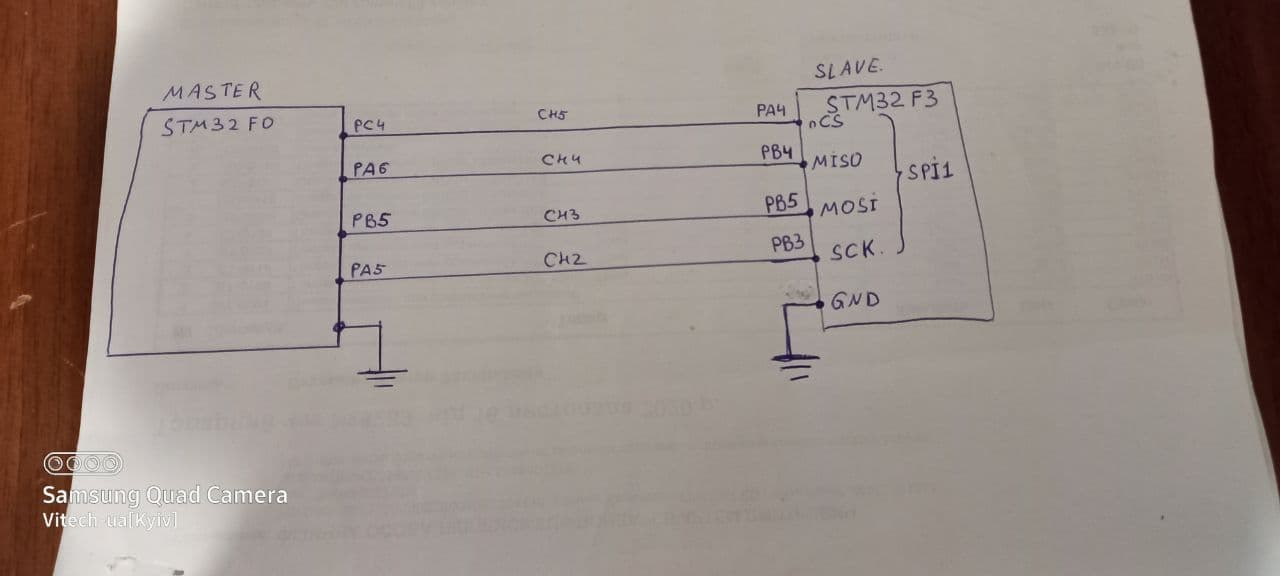 MASTER
STM32 F0
SLAVE.
STM32 F3
PC4 CH5 PA4 nCS
PA6 CH4 PB4 MISO
SPI1
PB5 CH3 PB5 MOSI
PA5 CH2 PB3 SCK.
GND
Samsung Quad Camera
Vitech-ua[Kyiv]